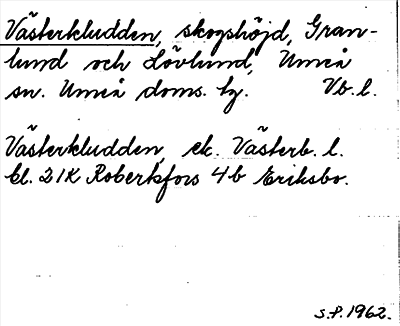 Västerkludden, skogshöjd, Gran-
lund och Lövlund, Umeå
sn. Umeå doms. hg. Vb. l.
Västerkludden, ek. Västerb. l.
bl. 21K Robertsfors 4b Eriksbo.
S.P. 1962.